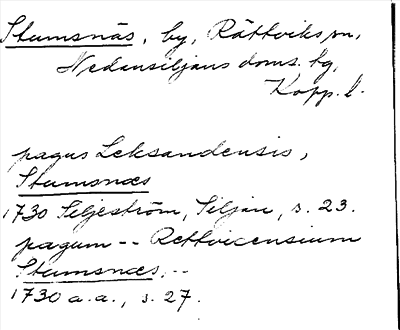 Stumsnäs, by, Rättviks sn,
Nedansiljans doms. tg,
Kopp. l.
pagus Leksandensis,
Stumsnæs
1730 Siljeström, Siljan, s. 23.
pagum -- Rettvicensium
Stumsnæs, --
1730 a.a., s. 27.